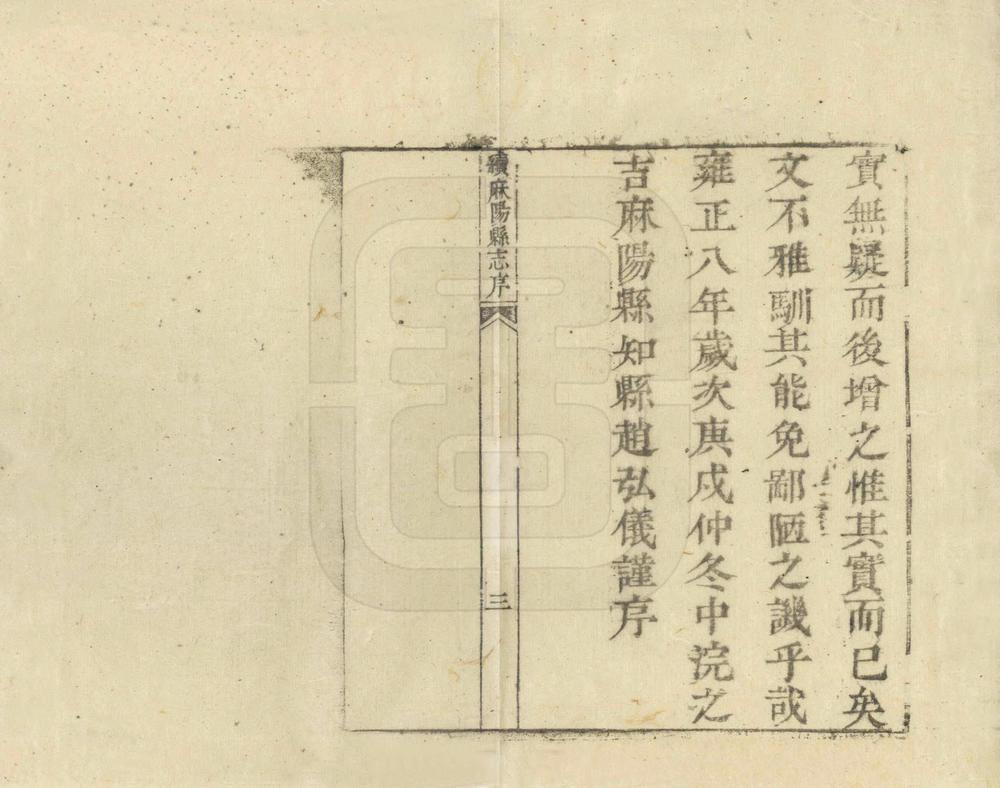 實無疑而後增之惟其實而已矣
文不雅馴其能免鄙陋之譏乎哉
雍正八年歲次庚戌仲冬中浣之
吉麻陽縣知縣趙弘儀謹序
續麻陽縣志序
三